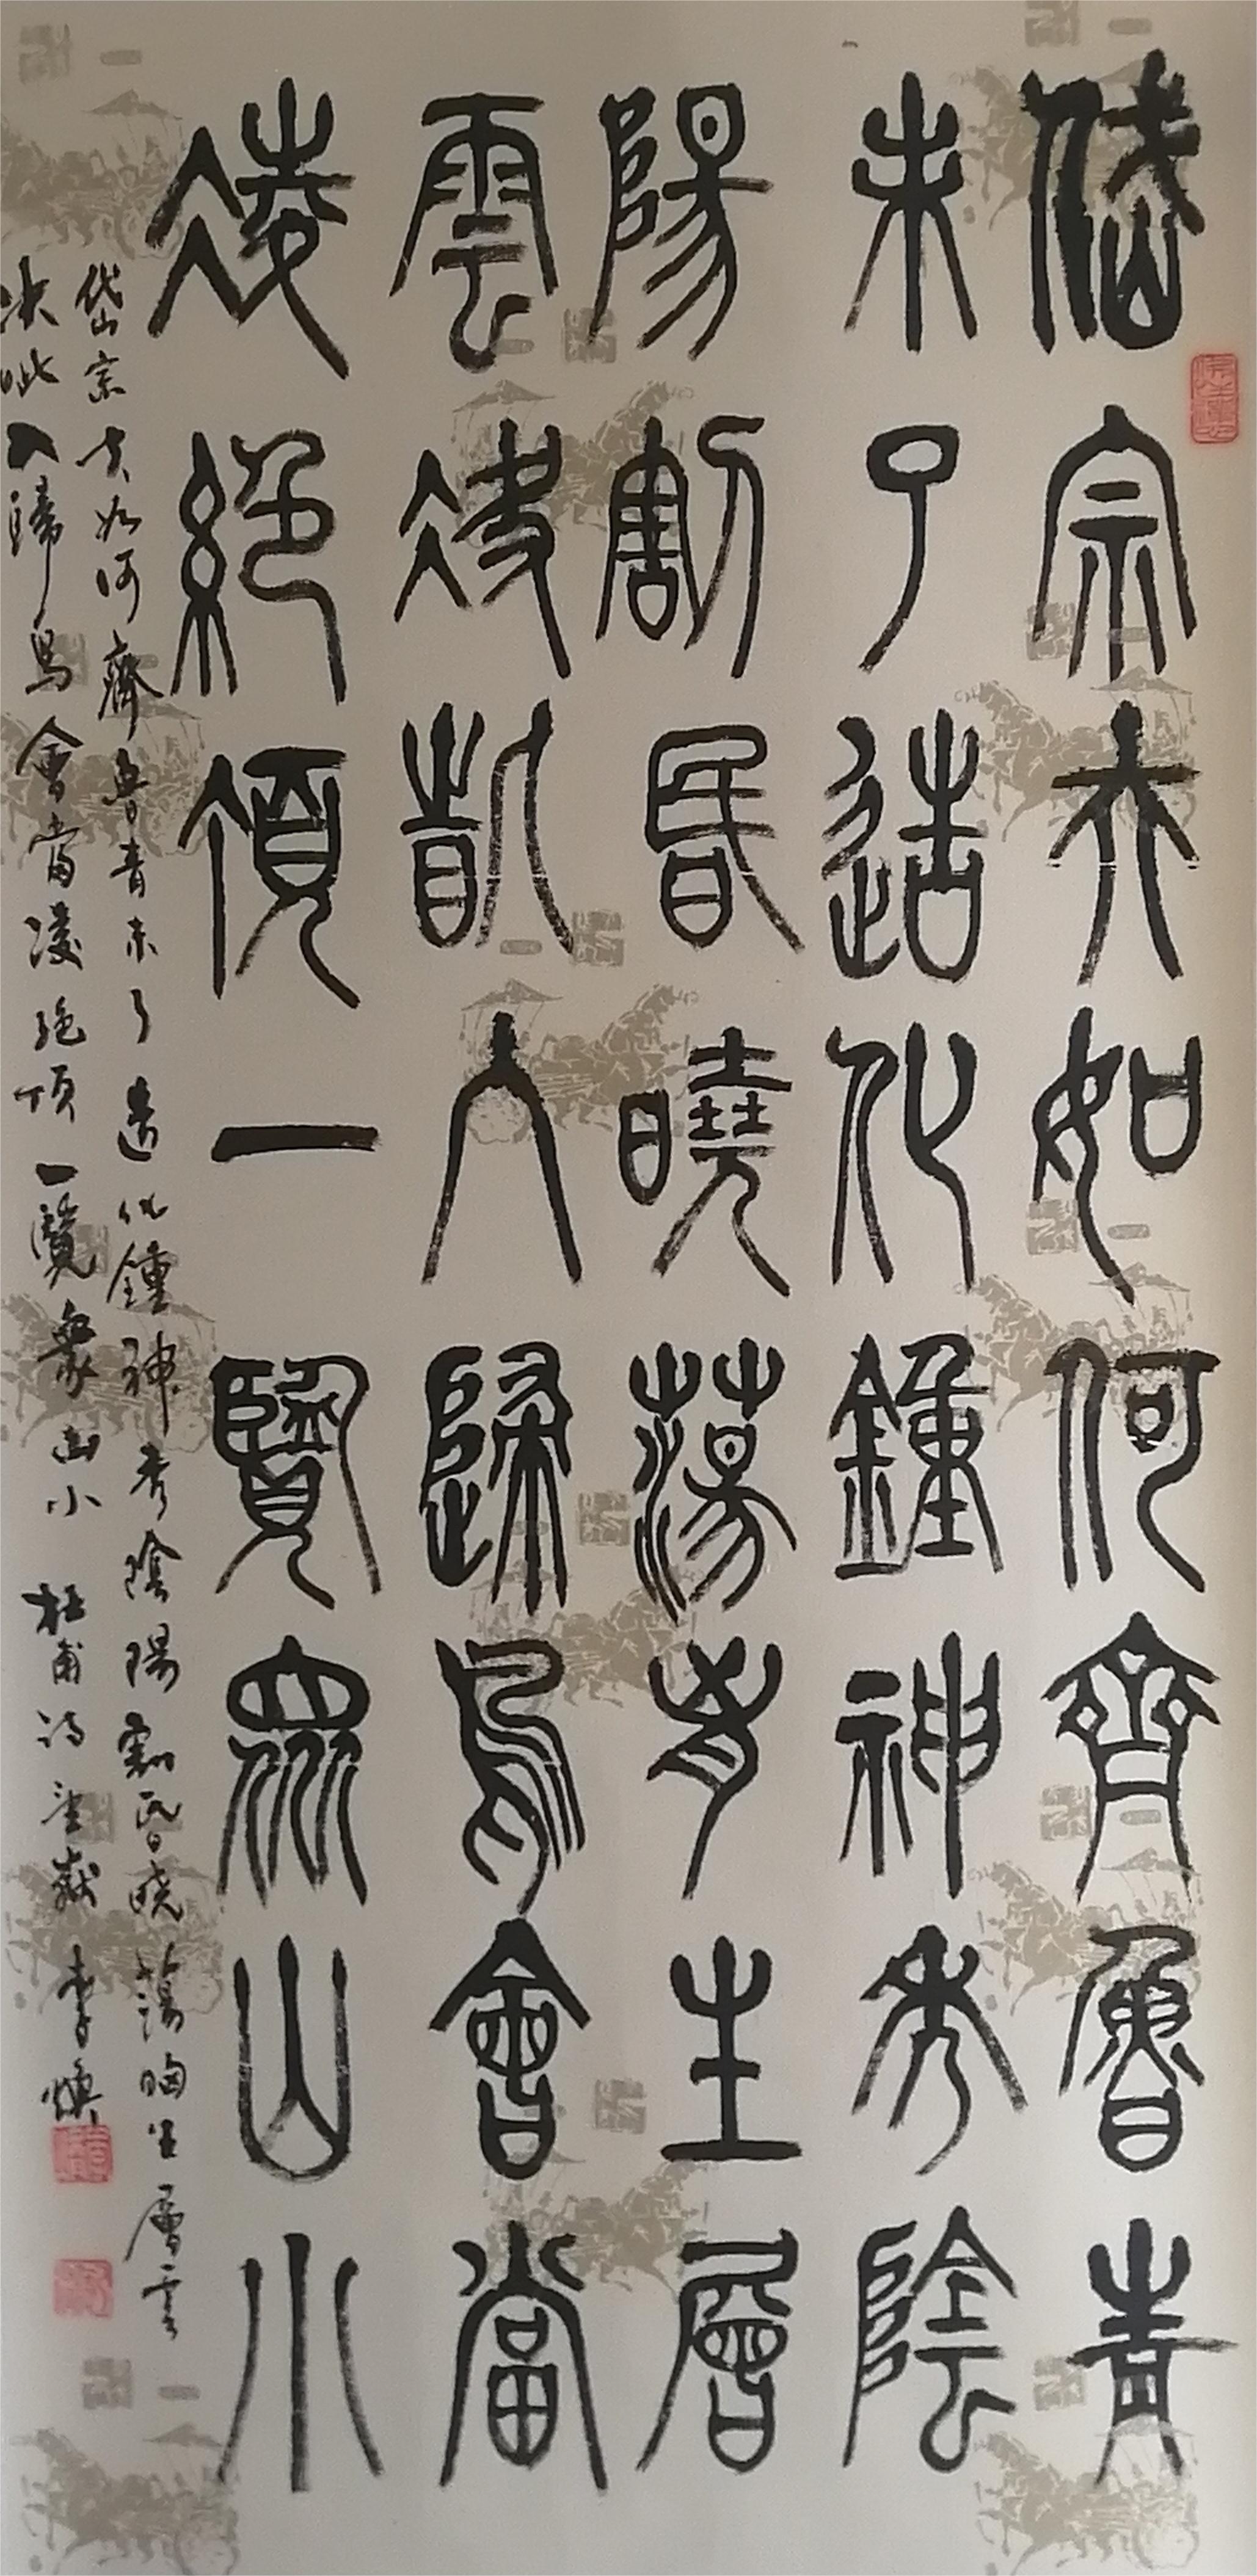 岱宗夫如何齊魯青
未了造化鍾神秀陰
陽割昏曉蕩胸生層
雲決眥入歸鳥會當
凌絕頂一覽眾山小
岱宗夫如何齊魯青未了造化鍾神秀陰陽割昏晓蕩胸生層云
决眦入歸鳥會當凌絶頂一覽眾山小 杜甫诗望嶽 李煥